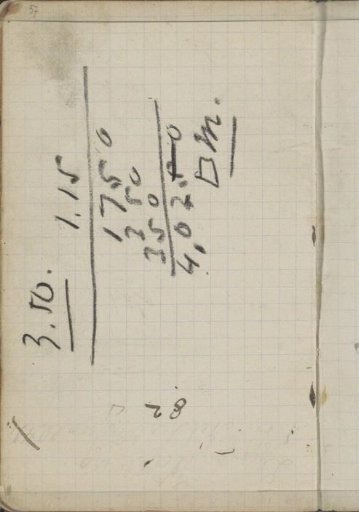 3.50. 1.15
1750
350
350
4,0250
□ m.
82
57